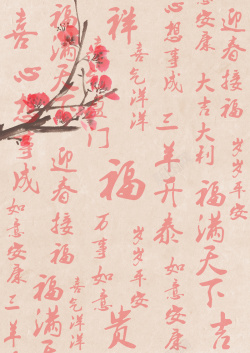 福满天下
岁岁平安
吉
意安康
大吉大利
福满天下
心想事成
三羊开泰
如意安康
喜气洋洋
岁岁平安
祥
福
贵
门
万事如意
福满天下
迎春接福
喜气洋洋
福满
喜
心
事成
如意安康
三羊